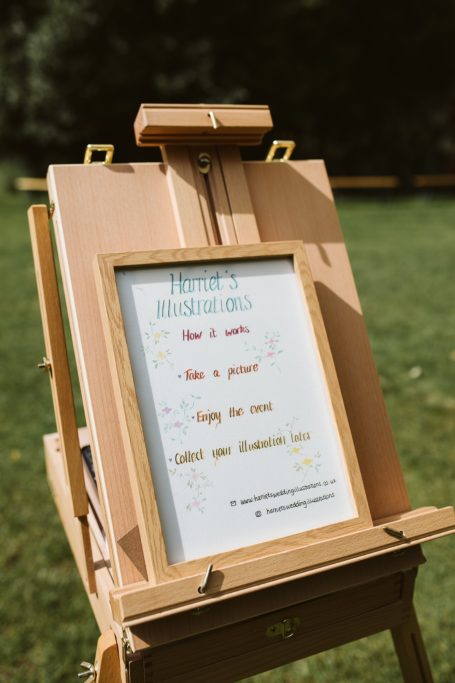 Harriet's
Illustrations
How it works
Take a picture
Enjoy the event
Collect your illustration later
www.harrietsweddingillustrations.co.uk
harrietsweddingillustrations